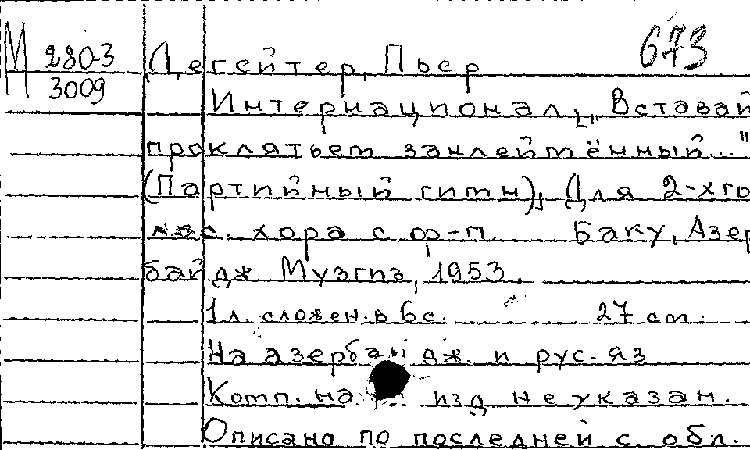 М 2803
3009
673
Дегейтер, Пьер
Интернационал „Вставай
проклятьем заклеймённый..."
(Партийный гимн), Для 2-хго
хора с ф-п. Баку, Азер
байдж Музгиз, 1953.
1л. сложен. в 6с. 27 cm.
На азербайдж. и рус. яз
Комп. на изд не указан.
Описано по последней с. обл.